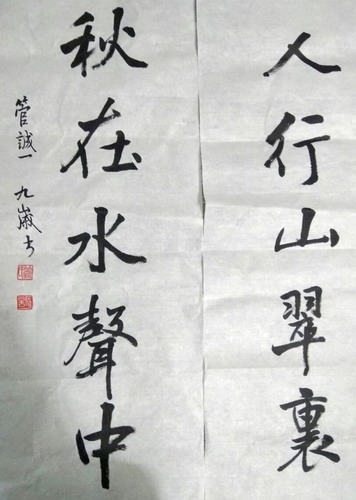 人行山翠裏
秋在水聲中
管誠一 九歲书